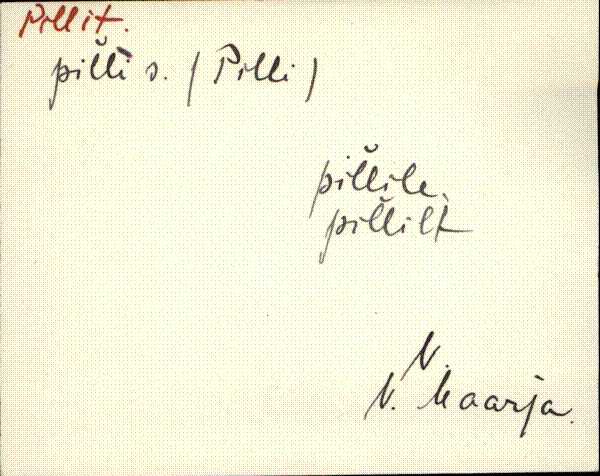 Pillit.
pilli s. (Pilli)
pillile,
pillilt
N.
V. Maarja.